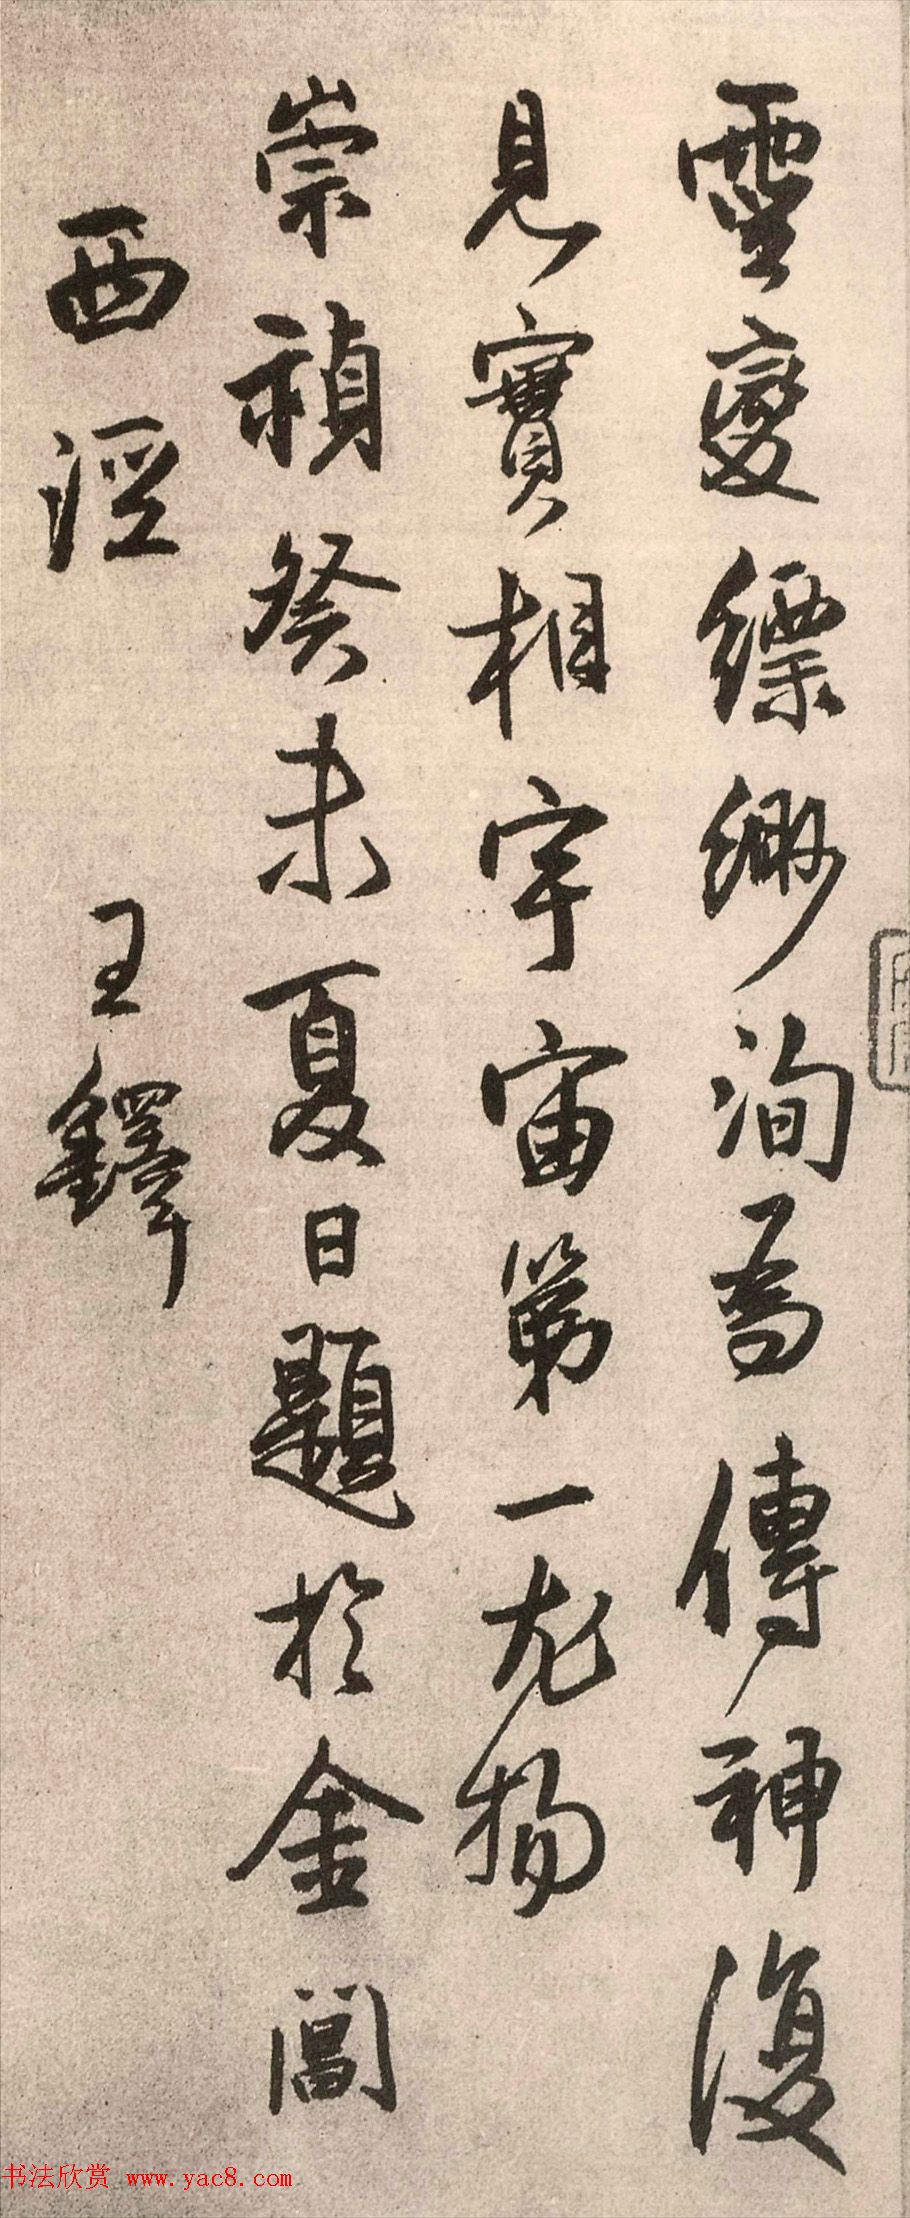 靈變縹緲洵為傳神復
見寶相宇宙第一尤物
崇禎癸未夏日題於金閶
西涇 王鐸
书法欣赏 www.yac8.com